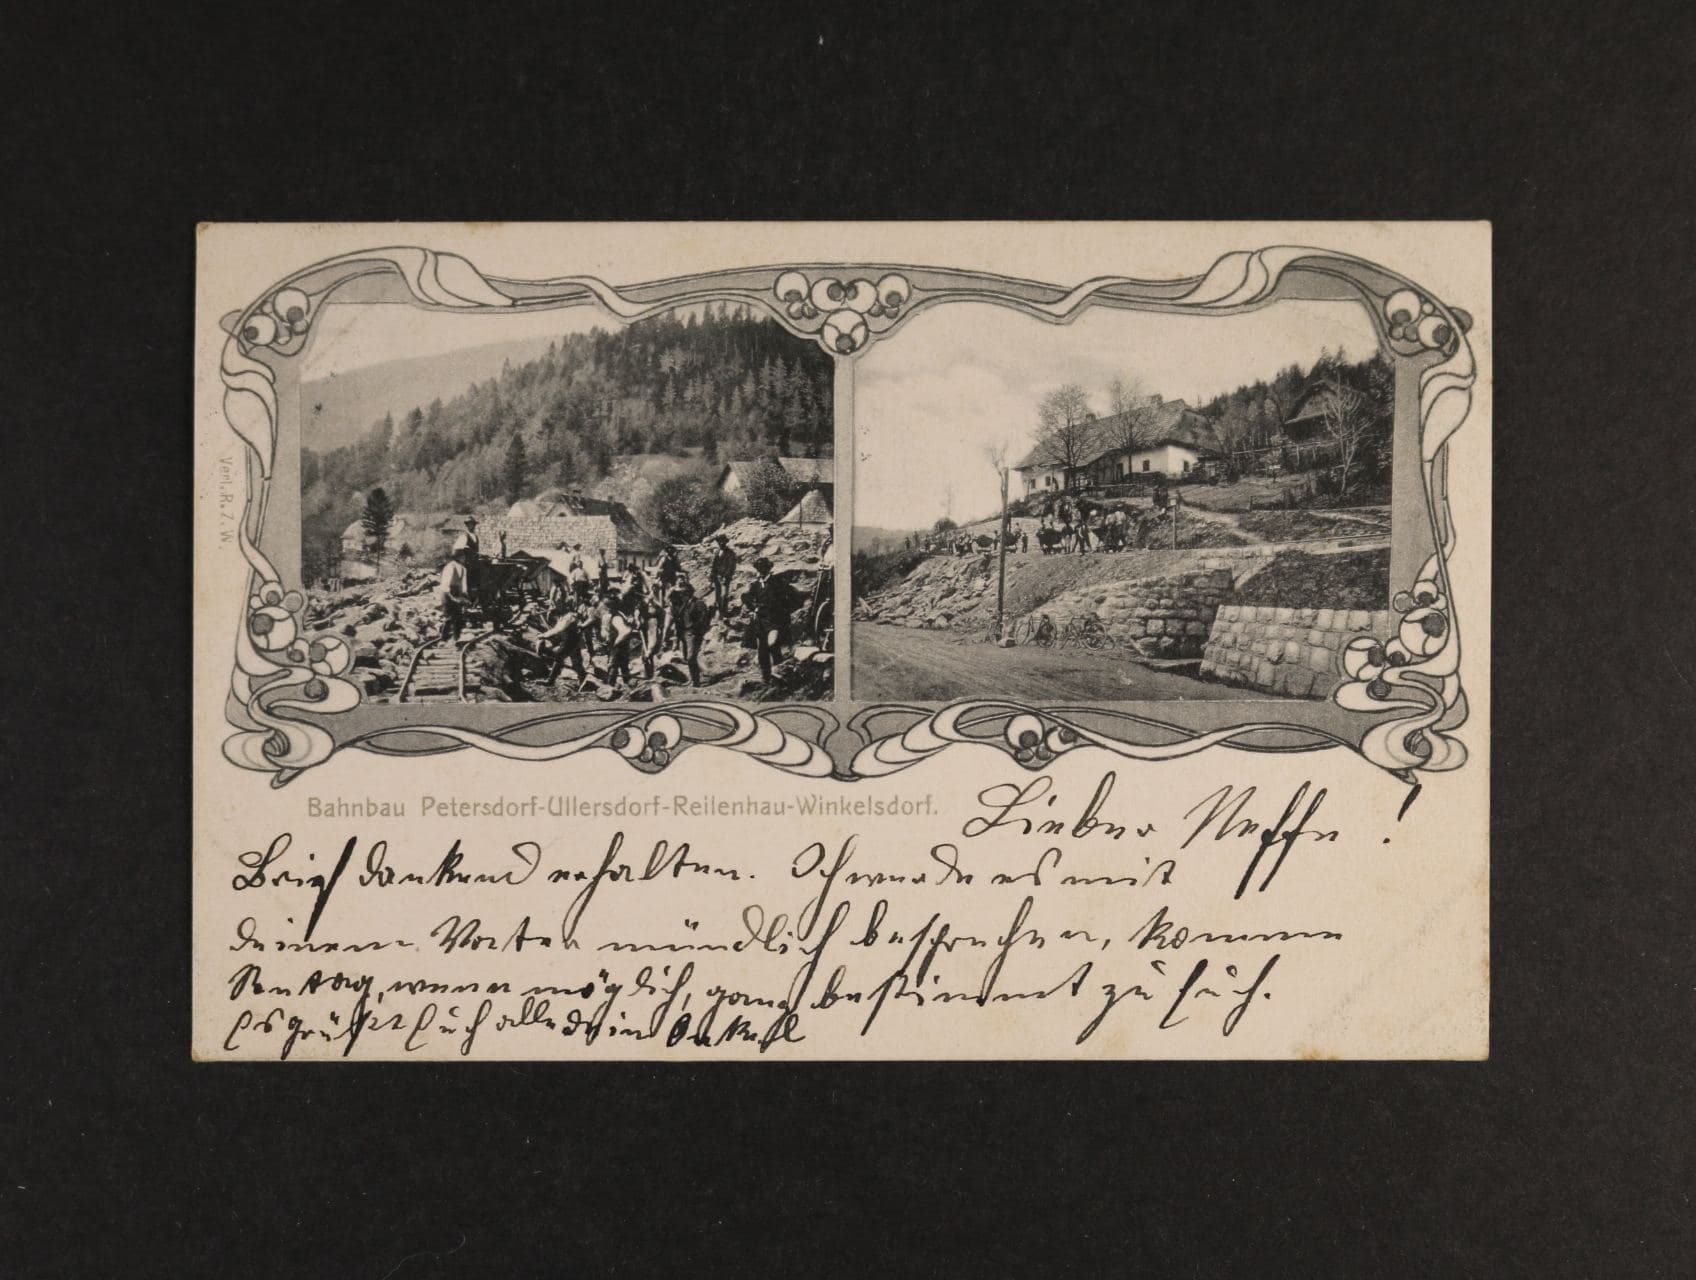 Verl. R. Z. W.
Bahnbau Petersdorf-Ullersdorf-Reitenhau-Winkelsdorf.
Lieber Neffe!
Brief dankend erhalten. Ich werde es mit
deinem Vater mündlich besprechen, komme
wenn möglich, ganz bestimmt zu Euch.
Es grüßt Euch alle dein Onkel